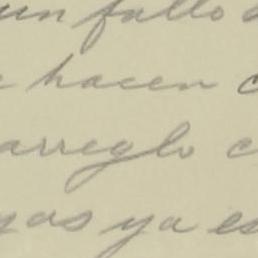 un fallo
hacen
arreglo
ya es